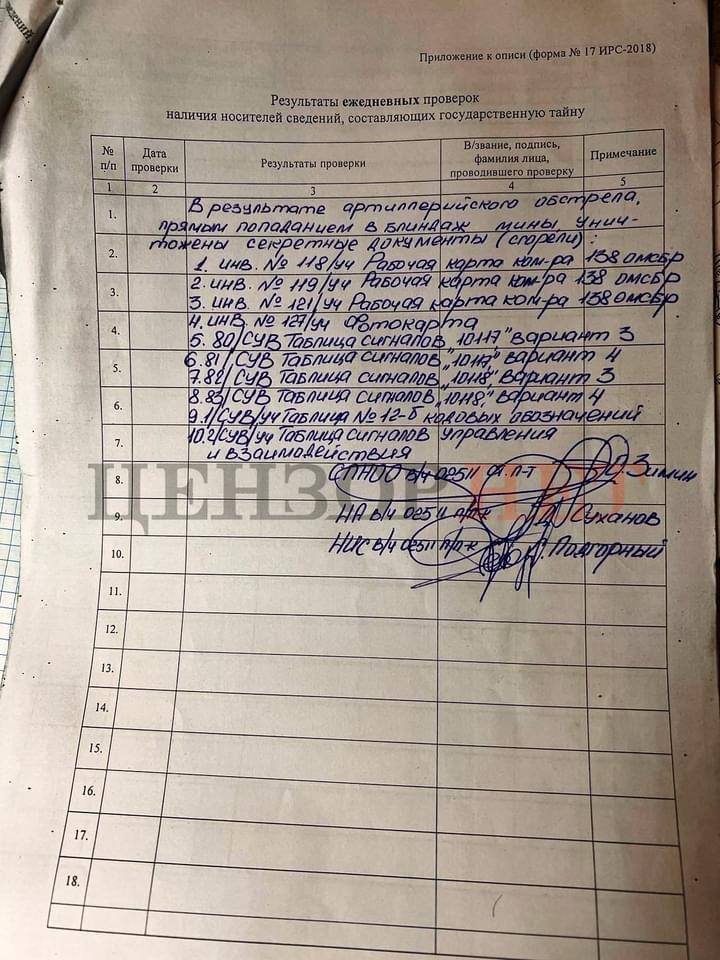 Приложение к описи (форма № 17 ИРС-2018)
Результаты ежедневных проверок
наличия носителей сведений, составляющих государственную тайну
№ п/п
Дата проверки
Результаты проверки
В/звание, подпись, фамилия лица, проводившего проверку
Примечание
1 2 3 4 5
1.
В результате артиллерийского обстрела,
прямым попаданием в блиндаж мины унич-
2.
тожены секретные документы (сгорели):
1. инв. № 118/уч Рабочая карта ком-ра 138 омсбр
3.
2. инв. № 119/уч Рабочая карта ком-ра 138 омсбр
3. инв. № 121/уч Рабочая карта ком-ра 138 омсбр
4.
4. инв. № 127/уч Фотокарта
5. 80/СУВ Таблица сигналов „10117" вариант 3
5.
6. 81/СУВ Таблица сигналов „10117" вариант 4
7. 82/СУВ Таблица сигналов „10118" вариант 3
6.
8. 83/СУВ Таблица сигналов „10118" вариант 4
9. 1/СУВ/уч Таблица № 12-б кодовых обозначений
7.
10. 2/СУВ/уч Таблица сигналов управления
и взаимодействия
8
в/ч 02511 Зимин
9.
НА в/ч 02511 п/п-к Суханов
10.
НИС в/ч 02511 п/п-к Подгорный
11.
12.
13.
14.
15.
16.
17.
18.
ЦЕНЗОР.НЕТ